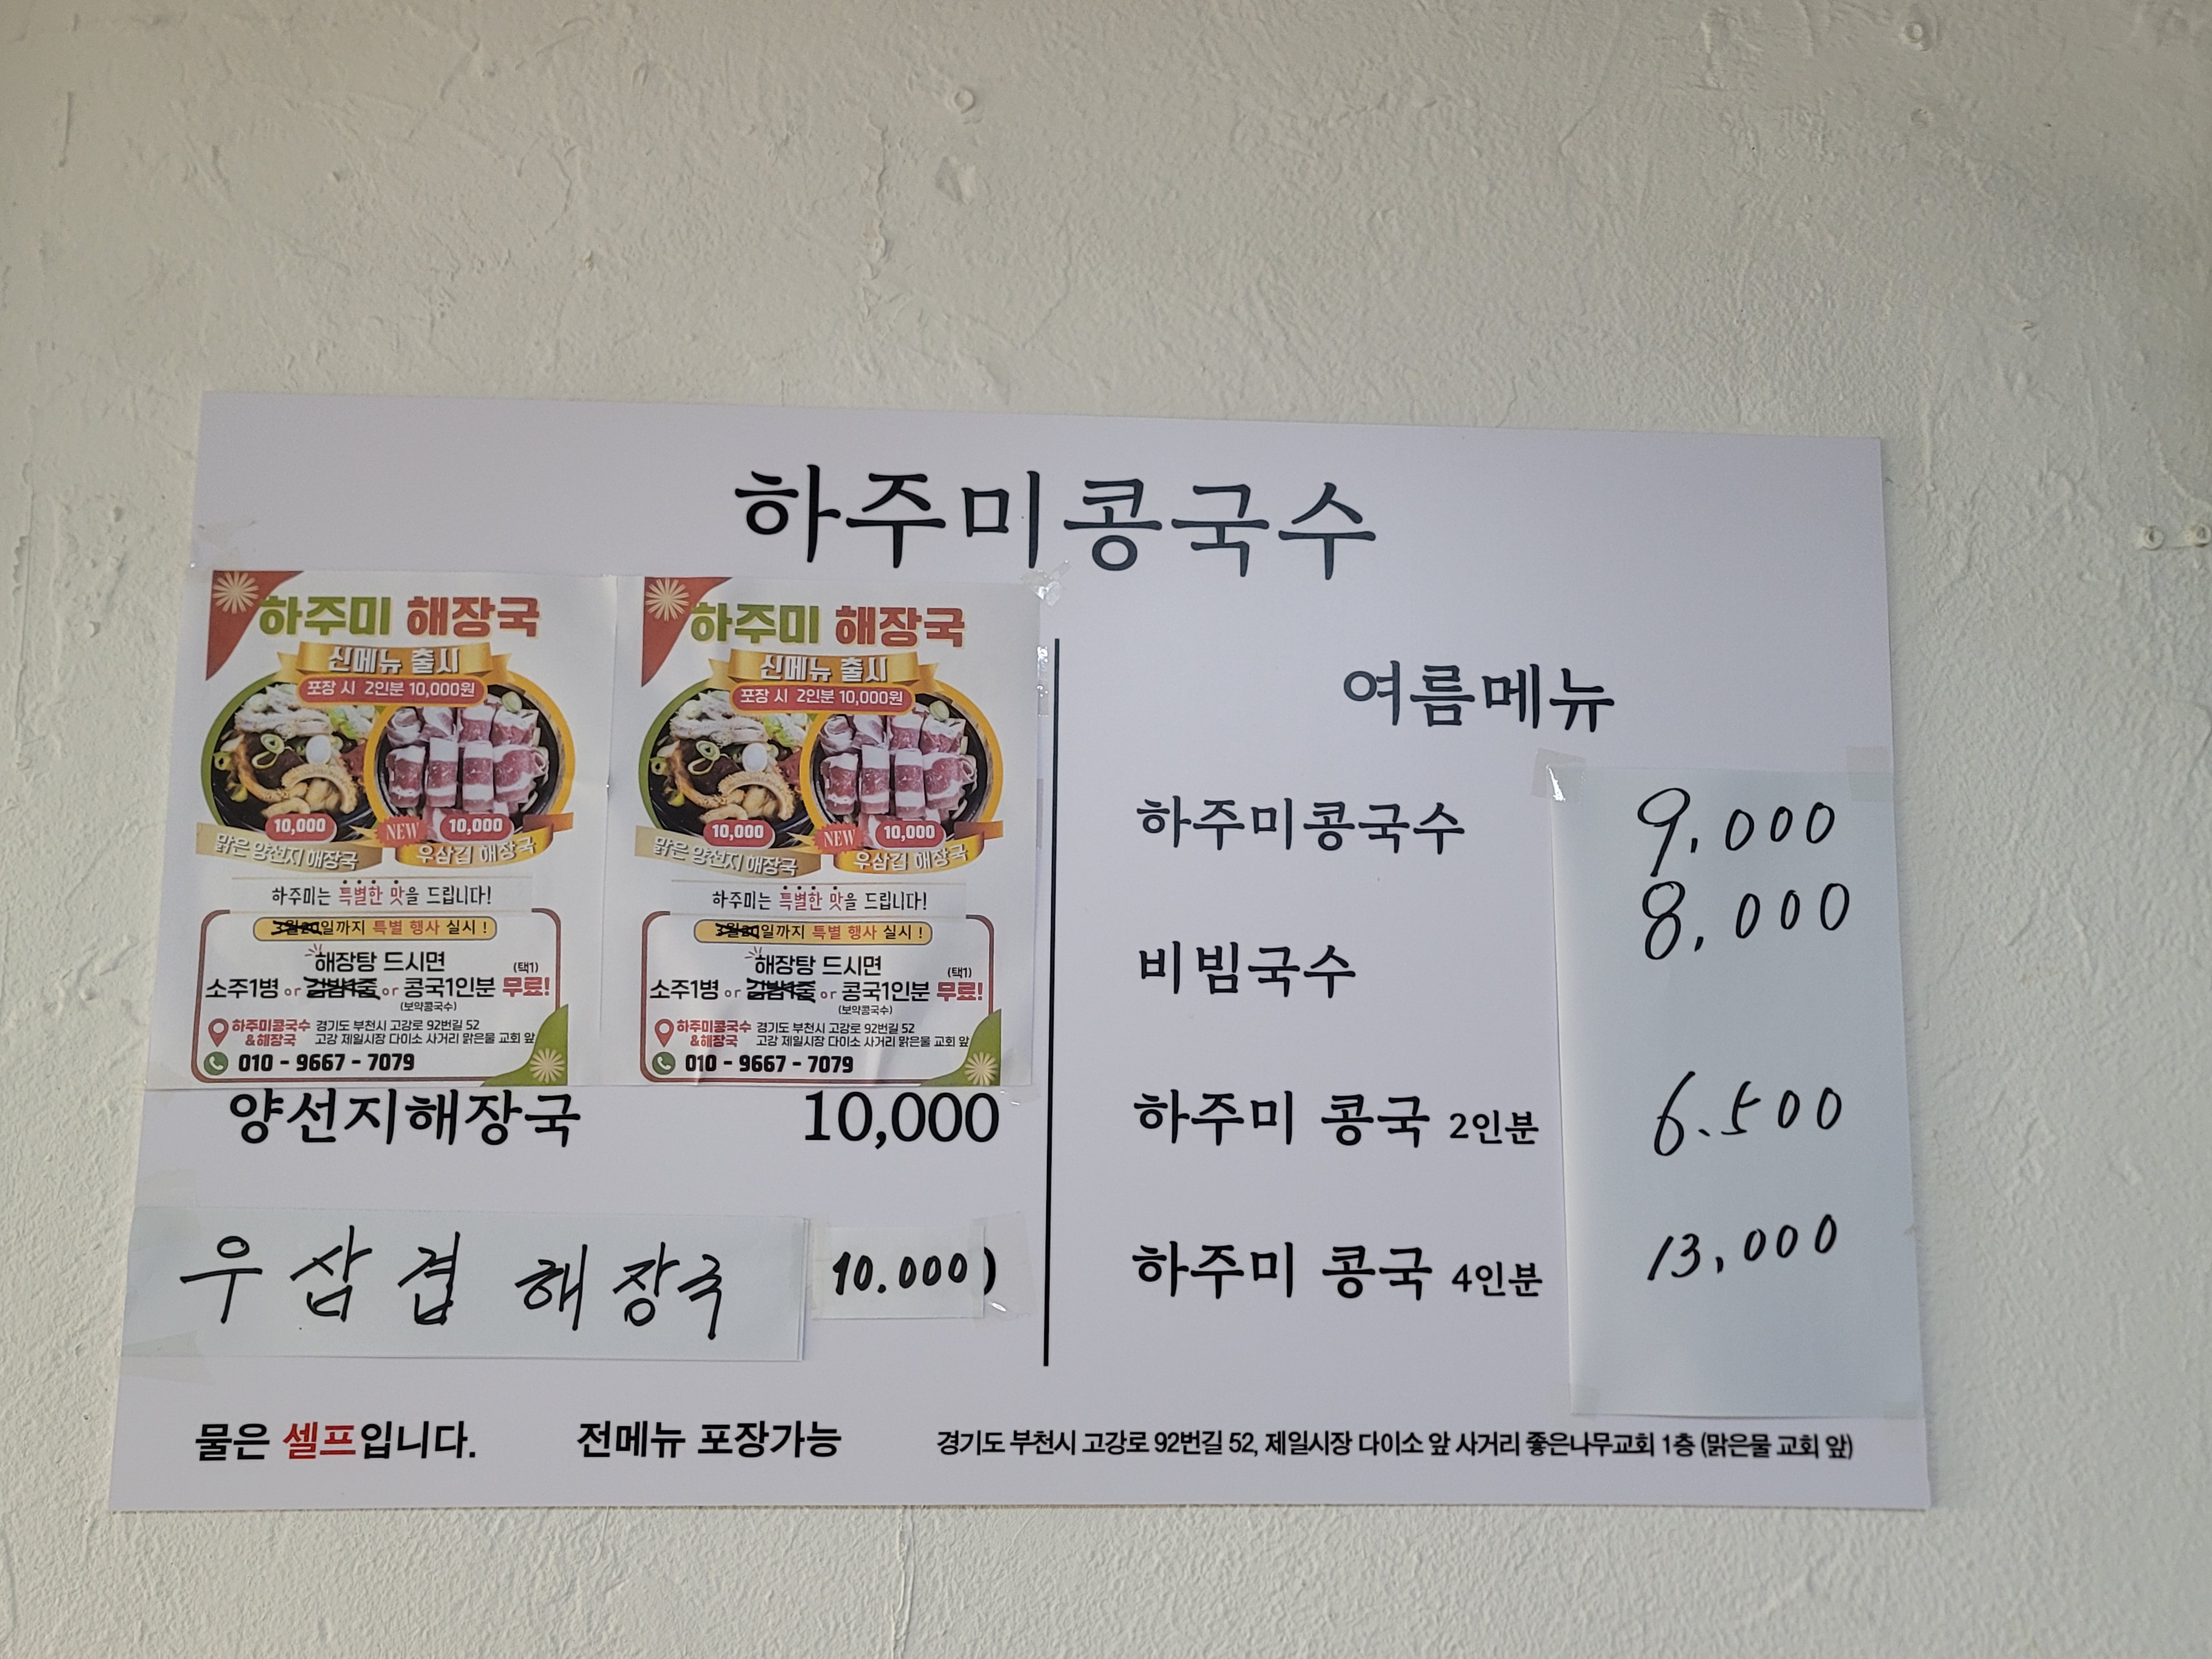 하주미콩국수
하주미 해장국
신메뉴 출시
포장 시 2인분 10,000원
10,000 NEW 10,000
맑은 양선지 해장국 우삼겹 해장국
하주미는 특별한 맛을 드립니다!
일까지 특별 행사 실시 !
해장탕 드시면
소주1병 or or 콩국1인분 무료! (택1)
(보약콩국수)
하주미콩국수 경기도 부천시 고강로 92번길 52
&해장국 고강 제일시장 다이소 사거리 맑은물 교회 앞
010 - 9667 - 7079
하주미 해장국
신메뉴 출시
포장 시 2인분 10,000원
10,000 NEW 10,000
맑은 양선지 해장국 우삼겹 해장국
하주미는 특별한 맛을 드립니다!
일까지 특별 행사 실시 !
해장탕 드시면
소주1병 or or 콩국1인분 무료! (택1)
(보약콩국수)
하주미콩국수 경기도 부천시 고강로 92번길 52
&해장국 고강 제일시장 다이소 사거리 맑은물 교회 앞
010 - 9667 - 7079
양선지해장국 10,000
우삼겹 해장국 10.000)
여름메뉴
하주미콩국수 9,000
비빔국수 8,000
하주미 콩국 2인분 6.500
하주미 콩국 4인분 13,000
물은 셀프입니다. 전메뉴 포장가능 경기도 부천시 고강로 92번길 52, 제일시장 다이소 앞 사거리 좋은나무교회 1층 (맑은물 교회 앞)